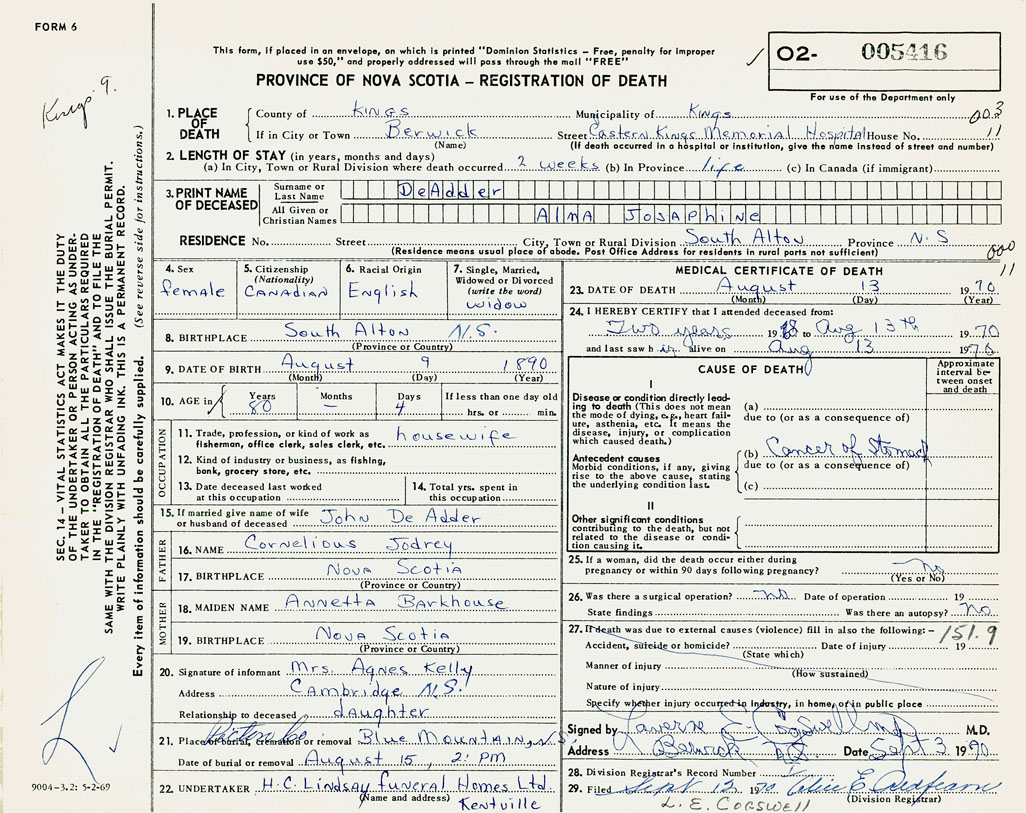 FORM 6
This form, if placed in an envelope, on which is printed "Dominion Statistics – Free, penalty for improper
use $50," and properly addressed will pass through the mail "FREE"
O2- 005416
For use of the Department only
PROVINCE OF NOVA SCOTIA – REGISTRATION OF DEATH
Kings 9.
1. PLACE OF DEATH
County of Kings Municipality of Kings 003
If in City or Town Berwick Street Eastern Kings Memorial Hospital House No. 11
(Name) (If death occurred in a hospital or institution, give the name instead of street and number)
2. LENGTH OF STAY (in years, months and days)
(a) In City, Town or Rural Division where death occurred 2 weeks (b) In Province life (c) In Canada (if immigrant)
3. PRINT NAME OF DECEASED
Surname or Last Name DeAdder
All Given or Christian Names Alma Josaphine
RESIDENCE No. Street City, Town or Rural Division South Alton Province N.S 000
(Residence means usual place of abode. Post Office Address for residents in rural parts not sufficient) 11
4. Sex female
5. Citizenship (Nationality) CANADIAN
6. Racial Origin English
7. Single, Married, Widowed or Divorced (write the word) widow
8. BIRTHPLACE South Alton N.S.
(Province or Country)
9. DATE OF BIRTH August 9 1890
(Month) (Day) (Year)
10. AGE in Years 80 Months – Days 4 If less than one day old hrs. or min.
OCCUPATION
11. Trade, profession, or kind of work as housewife
fisherman, office clerk, sales clerk, etc.
12. Kind of industry or business, as fishing,
bank, grocery store, etc.
13. Date deceased last worked
at this occupation
14. Total yrs. spent in
this occupation
15. If married give name of wife
or husband of deceased John De Adder
FATHER
16. NAME Cornelious Jodrey
17. BIRTHPLACE Nova Scotia
(Province or Country)
MOTHER
18. MAIDEN NAME Annetta Barkhouse
19. BIRTHPLACE Nova Scotia
(Province or Country)
20. Signature of informant Mrs. Agnes Kelly
Address Cambridge N.S.
Relationship to deceased daughter
21. Place of burial, cremation or removal Blue Mountain, N.S.
Date of burial or removal August 15, 2: PM
22. UNDERTAKER H.C. Lindsay Funeral Homes Ltd.
(Name and address) Kentville
MEDICAL CERTIFICATE OF DEATH
23. DATE OF DEATH August 13 1970
(Month) (Day) (Year)
24. I HEREBY CERTIFY that I attended deceased from:
Two years 19 to Aug 13th 1970
and last saw h alive on Aug 13 1970
CAUSE OF DEATH
Approximate interval between onset and death
I
Disease or condition directly leading to death (This does not mean the mode of dying, e.g., heart failure, asthenia, etc. It means the disease, injury, or complication which caused death.)
(a)
due to (or as a consequence of)
Antecedent causes
Morbid conditions, if any, giving rise to the above cause, stating the underlying condition last.
(b) Cancer of Stomach
due to (or as a consequence of)
(c)
II
Other significant conditions
contributing to the death, but not related to the disease or condition causing it.
25. If a woman, did the death occur either during
pregnancy or within 90 days following pregnancy? No
(Yes or No)
26. Was there a surgical operation? no Date of operation 19
State findings Was there an autopsy? No
27. If death was due to external causes (violence) fill in also the following:– 151.9
Accident, suicide or homicide? Date of injury 19
(State which)
Manner of injury
(How sustained)
Nature of injury
Specify whether injury occurred in industry, in home, or in public place
Signed by Laverne E Coswell M.D.
Address Berwick NS Date Sept 3 1990
28. Division Registrar's Record Number
29. Filed Sept 12 1970
(Division Registrar)
L. E. COGSWELL
SEC. 14 – VITAL STATISTICS ACT MAKES IT THE DUTY
OF THE UNDERTAKER OR PERSON ACTING AS UNDER-
TAKER TO OBTAIN ALL THE PARTICULARS REQUIRED
IN THE "REGISTRATION OF DEATH" AND TO FILE THE
SAME WITH THE DIVISION REGISTRAR WHO SHALL ISSUE THE BURIAL PERMIT.
WRITE PLAINLY WITH UNFADING INK. THIS IS A PERMANENT RECORD.
Every item of information should be carefully supplied. (See reverse side for instructions.)
9004-3.2: 5-2-69